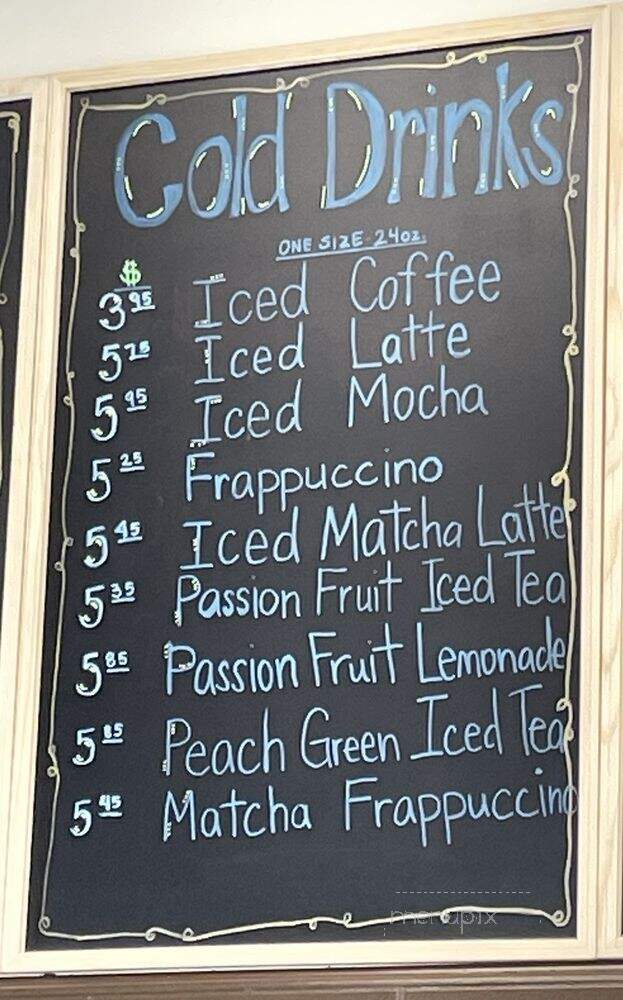 Cold Drinks
ONE SIZE 24oz.
$
3.95 Iced Coffee
5.25 Iced Latte
5.95 Iced Mocha
5.25 Frappuccino
5.45 Iced Matcha Latte
5.35 Passion Fruit Iced Tea
5.85 Passion Fruit Lemonade
5.85 Peach Green Iced Tea
5.45 Matcha Frappuccino
menupix